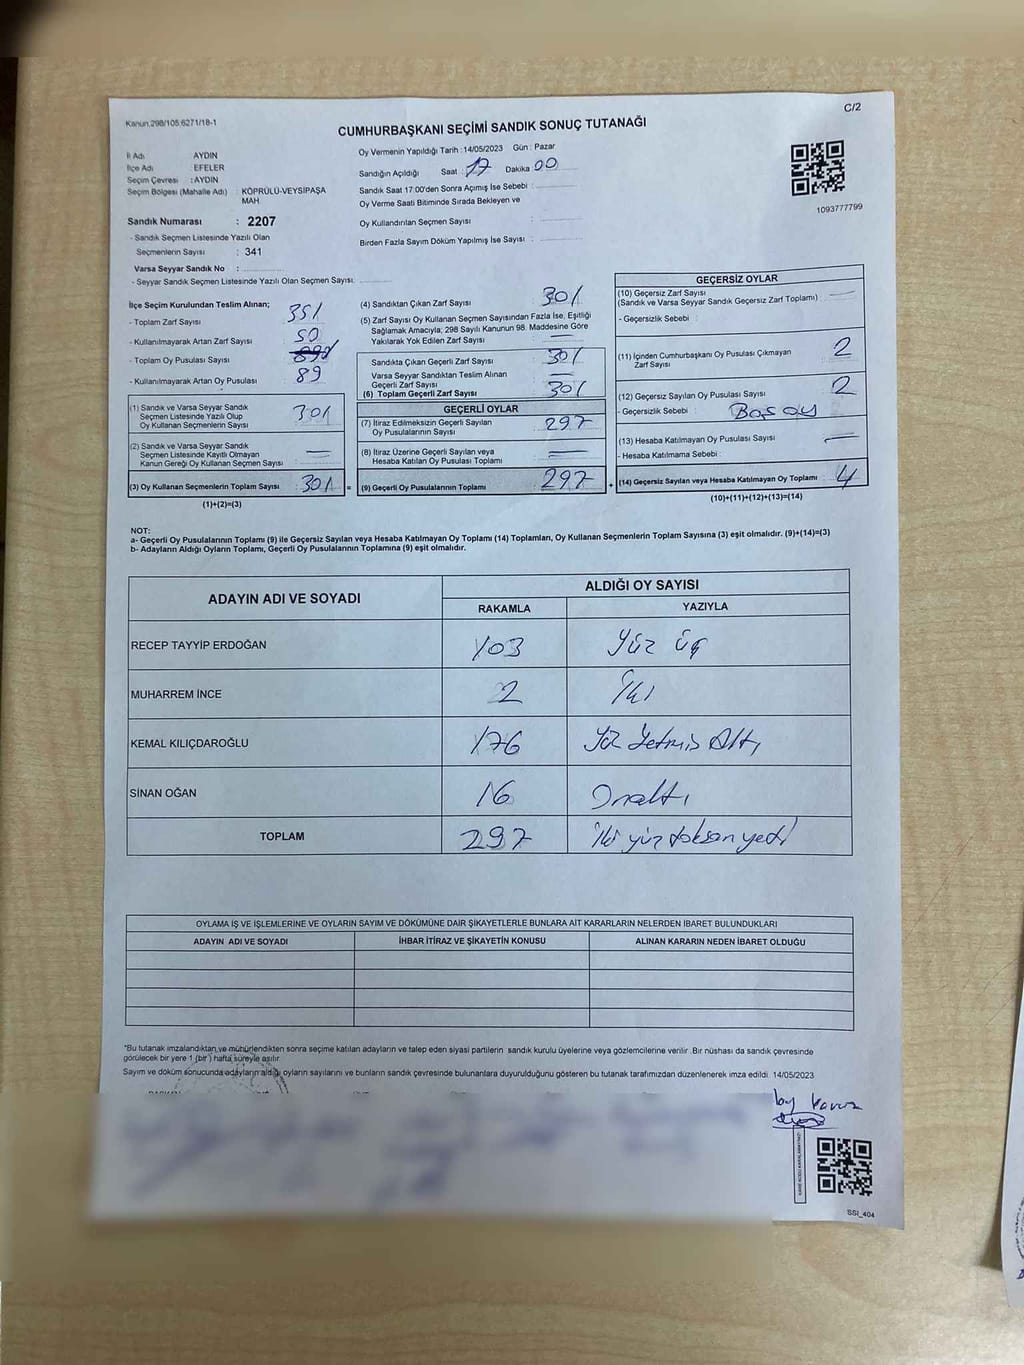 Kanun.298/105.6271/18-1
C/2
CUMHURBAŞKANI SEÇİMİ SANDIK SONUÇ TUTANAĞI
İl Adı AYDIN
İlçe Adı EFELER
Seçim Çevresi : AYDIN
Seçim Bölgesi (Mahalle Adı) : KÖPRÜLÜ-VEYSİPAŞA MAH
Sandık Numarası : 2207
- Sandık Seçmen Listesinde Yazılı Olan
Seçmenlerin Sayısı : 341
Varsa Seyyar Sandık No :
- Seyyar Sandık Seçmen Listesinde Yazılı Olan Seçmen Sayısı
Oy Vermenin Yapıldığı Tarih : 14/05/2023 Gün : Pazar
Sandığın Açıldığı Saat : 17 Dakika 00
Sandık Saat 17:00'den Sonra Açımış İse Sebebi :
Oy Verme Saati Bitiminde Sırada Bekleyen ve
Oy Kullandırılan Seçmen Sayısı :
Birden Fazla Sayım Döküm Yapılmış İse Sayısı :
1093777799
İlçe Seçim Kurulundan Teslim Alınan;
- Toplam Zarf Sayısı 351
- Kullanılmayarak Artan Zarf Sayısı 50
- Toplam Oy Pusulası Sayısı
- Kullanılmayarak Artan Oy Pusulası 89
(1) Sandık ve Varsa Seyyar Sandık
Seçmen Listesinde Yazılı Olup
Oy Kullanan Seçmenlerin Sayısı 301
(2) Sandık ve Varsa Seyyar Sandık
Seçmen Listesinde Kayıtlı Olmayan
Kanun Gereği Oy Kullanan Seçmen Sayısı —
(3) Oy Kullanan Seçmenlerin Toplam Sayısı 301 =
(1)+(2)=(3)
(4) Sandıktan Çıkan Zarf Sayısı 301
(5) Zarf Sayısı Oy Kullanan Seçmen Sayısından Fazla İse, Eşitliği
Sağlamak Amacıyla; 298 Sayılı Kanunun 98. Maddesine Göre
Yakılarak Yok Edilen Zarf Sayısı —
Sandıkta Çıkan Geçerli Zarf Sayısı 301
Varsa Seyyar Sandıktan Teslim Alınan
Geçerli Zarf Sayısı —
(6) Toplam Geçerli Zarf Sayısı 301
GEÇERLİ OYLAR
(7) İtiraz Edilmeksizin Geçerli Sayılan
Oy Pusulalarının Sayısı 297
(8) İtiraz Üzerine Geçerli Sayılan veya
Hesaba Katılan Oy Pusulası Toplamı —
(9) Geçerli Oy Pusulalarının Toplamı 297 +
GEÇERSİZ OYLAR
(10) Geçersiz Zarf Sayısı
(Sandık ve Varsa Seyyar Sandık Geçersiz Zarf Toplamı) —
- Geçersizlik Sebebi :
(11) İçinden Cumhurbaşkanı Oy Pusulası Çıkmayan
Zarf Sayısı 2
(12) Geçersiz Sayılan Oy Pusulası Sayısı 2
- Geçersizlik Sebebi : Boş oy
(13) Hesaba Katılmayan Oy Pusulası Sayısı —
- Hesaba Katılmama Sebebi :
(14) Geçersiz Sayılan veya Hesaba Katılmayan Oy Toplamı 4
(10)+(11)+(12)+(13)=(14)
NOT:
a- Geçerli Oy Pusulalarının Toplamı (9) ile Geçersiz Sayılan veya Hesaba Katılmayan Oy Toplamı (14) Toplamları, Oy Kullanan Seçmenlerin Toplam Sayısına (3) eşit olmalıdır. (9)+(14)=(3)
b- Adayların Aldığı Oyların Toplamı, Geçerli Oy Pusulalarının Toplamına (9) eşit olmalıdır.
ADAYIN ADI VE SOYADI ALDIĞI OY SAYISI
RAKAMLA YAZIYLA
RECEP TAYYİP ERDOĞAN 103 Yüz üç
MUHARREM İNCE 2 İki
KEMAL KILIÇDAROĞLU 176 Yüz Yetmiş Altı
SİNAN OĞAN 16 Onaltı
TOPLAM 297 İki yüz doksan yedi
OYLAMA İŞ VE İŞLEMLERİNE VE OYLARIN SAYIM VE DÖKÜMÜNE DAİR ŞİKAYETLERLE BUNLARA AİT KARARLARIN NELERDEN İBARET BULUNDUKLARI
ADAYIN ADI VE SOYADI İHBAR İTİRAZ VE ŞİKAYETİN KONUSU ALINAN KARARIN NEDEN İBARET OLDUĞU
*Bu tutanak imzalandıktan ve mühürlendikten sonra seçime katılan adayların ve talep eden siyasi partilerin sandık kurulu üyelerine veya gözlemcilerine verilir. Bir nüshası da sandık çevresinde
görülecek bir yere 1 (bir) hafta süreyle asılır.
Sayım ve döküm sonucunda adayların aldığı oyların sayılarını ve bunların sandık çevresinde bulunanlara duyurulduğunu gösteren bu tutanak tarafımızdan düzenlenerek imza edildi. 14/05/2023
SSI_404